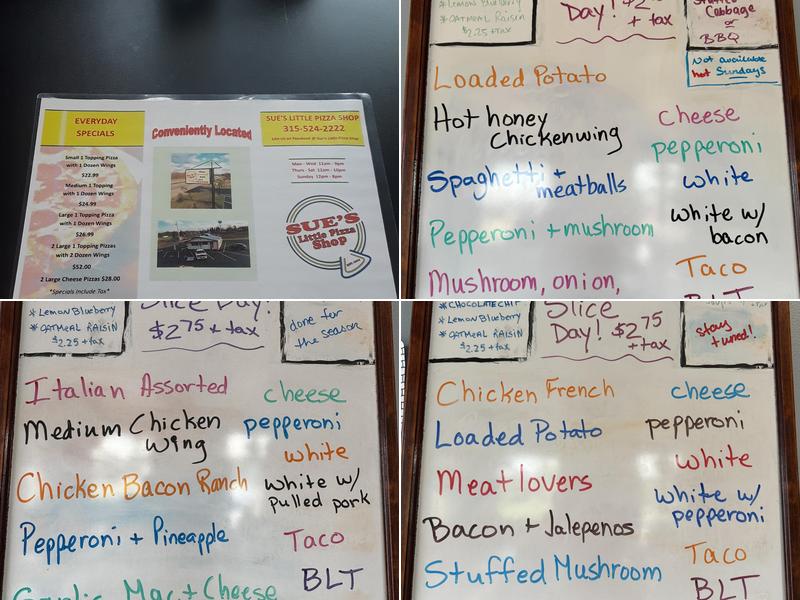 EVERYDAY
SPECIALS
Small 1 Topping Pizza
with 1 Dozen Wings
$22.99
Medium 1 Topping
with 1 Dozen Wings
$24.99
Large 1 Topping Pizza
with 1 Dozen Wings
$26.99
2 Large 1 Topping Pizzas
with 2 Dozen Wings
$52.00
2 Large Cheese Pizzas $28.00
*Specials Include Tax*
Conveniently Located
SUE'S LITTLE PIZZA SHOP
315-524-2222
Mon - Wed 11am - 9pm
Thurs - Sat 11am - 10pm
Sunday 12pm - 8pm
SUE'S
Little Pizza
Shop
* Lemon Blueberry
* OATMEAL Raisin
$2.25 + tax
Day! $2
+ tax
Stuffed
Cabbage
or
BBQ
Not available
hot Sundays
Loaded Potato
Hot honey
Chickenwing
Spaghetti +
meatballs
Pepperoni + mushroom
Mushroom, onion,
cheese
pepperoni
white
white w/
bacon
Taco
BLT
* Lemon Blueberry
* OATMEAL RAISIN
$2.25 + tax
Slice Day!
$2.75 + tax
done for
the season
Italian Assorted
Medium Chicken
Wing
Chicken Bacon Ranch
Pepperoni + Pineapple
Garlic Mac + Cheese
cheese
pepperoni
white
white w/
pulled pork
Taco
BLT
* CHOCOLATE CHIP
* Lemon Blueberry
* OATMEAL RAISIN
$2.25 + tax
Slice
Day! $2.75
+ tax
stay
tuned!
Chicken French
Loaded Potato
Meat lovers
Bacon + Jalepenos
Stuffed Mushroom
cheese
pepperoni
white
white w/
pepperoni
Taco
BLT